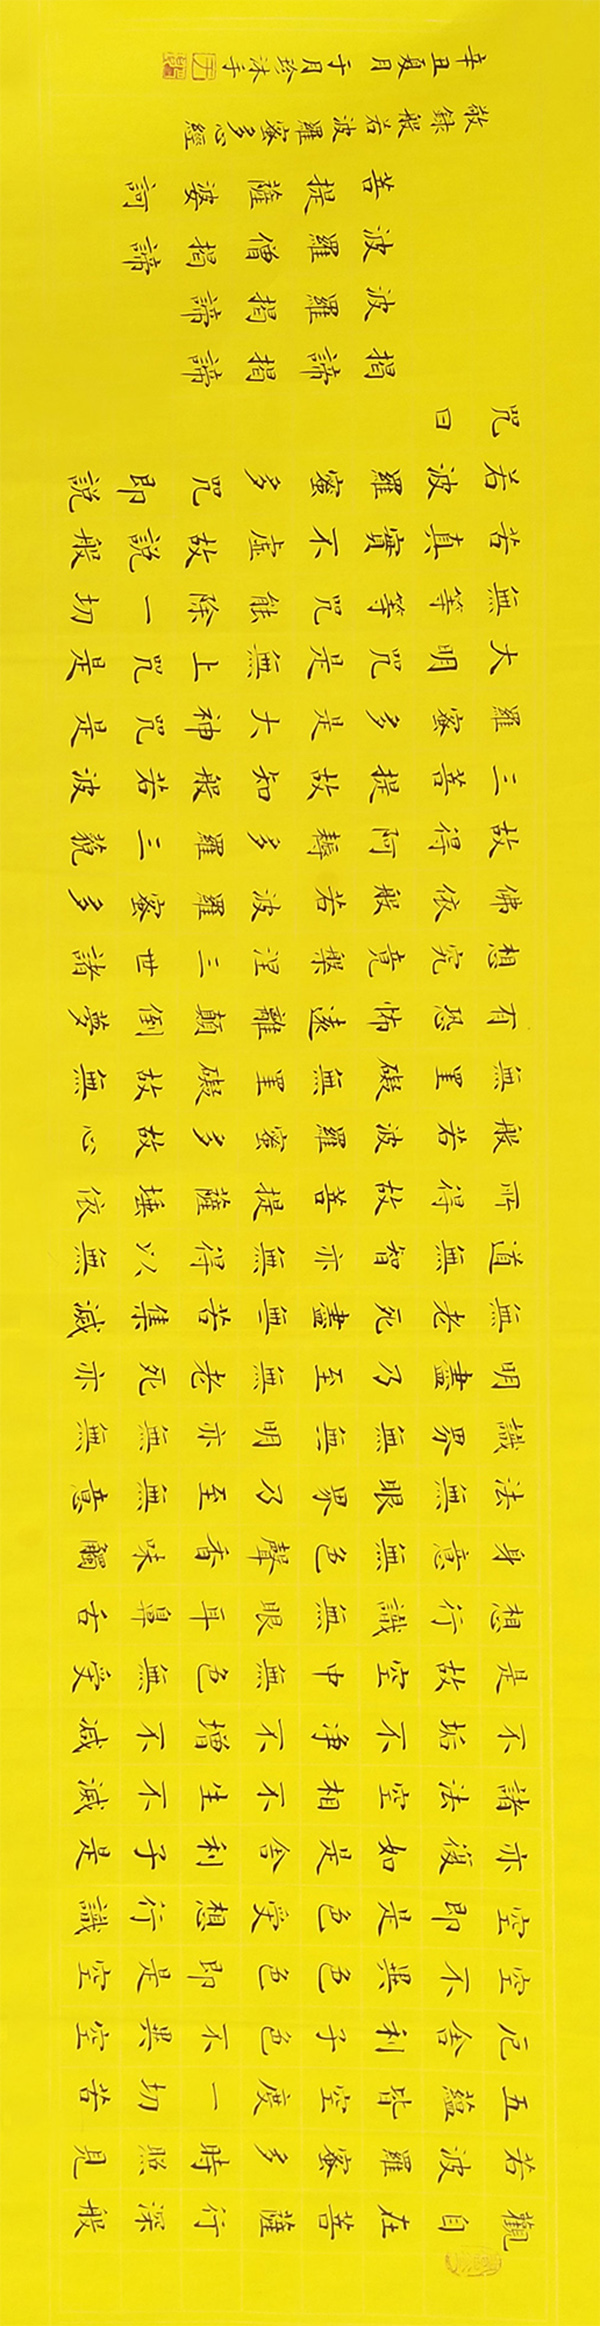 觀自在菩薩行深般
若波羅蜜多時照見
五蘊皆空度一切苦
厄舍利子色不異空
空不異色色即是空
空即是色受想行識
亦復如是舍利子是
諸法空相不生不滅
不垢不净不增不減
是故空中無色無受
想行識無眼耳鼻舌
身意無色聲香味觸
法無眼界乃至無意
識界無無明亦無無
明盡乃至無老死亦
無老死盡無苦集滅
道無智亦無得以無
所得故菩提薩埵依
般若波羅蜜多故心
無罣礙無罣礙故無
有恐怖遠離顛倒夢
想究竟槃涅三世諸
佛依般若波羅蜜多
故得阿耨多羅三藐
三菩提故知般若波
羅蜜多是大神咒是
大明咒是無上咒是
無等等咒能除一切
苦真實不虛故說般
若波羅蜜多咒即說
咒曰
揭諦揭諦
波羅揭諦
波羅僧揭諦
菩提薩婆訶
敬録般若波羅蜜多心經
辛丑夏月于月珍沐手